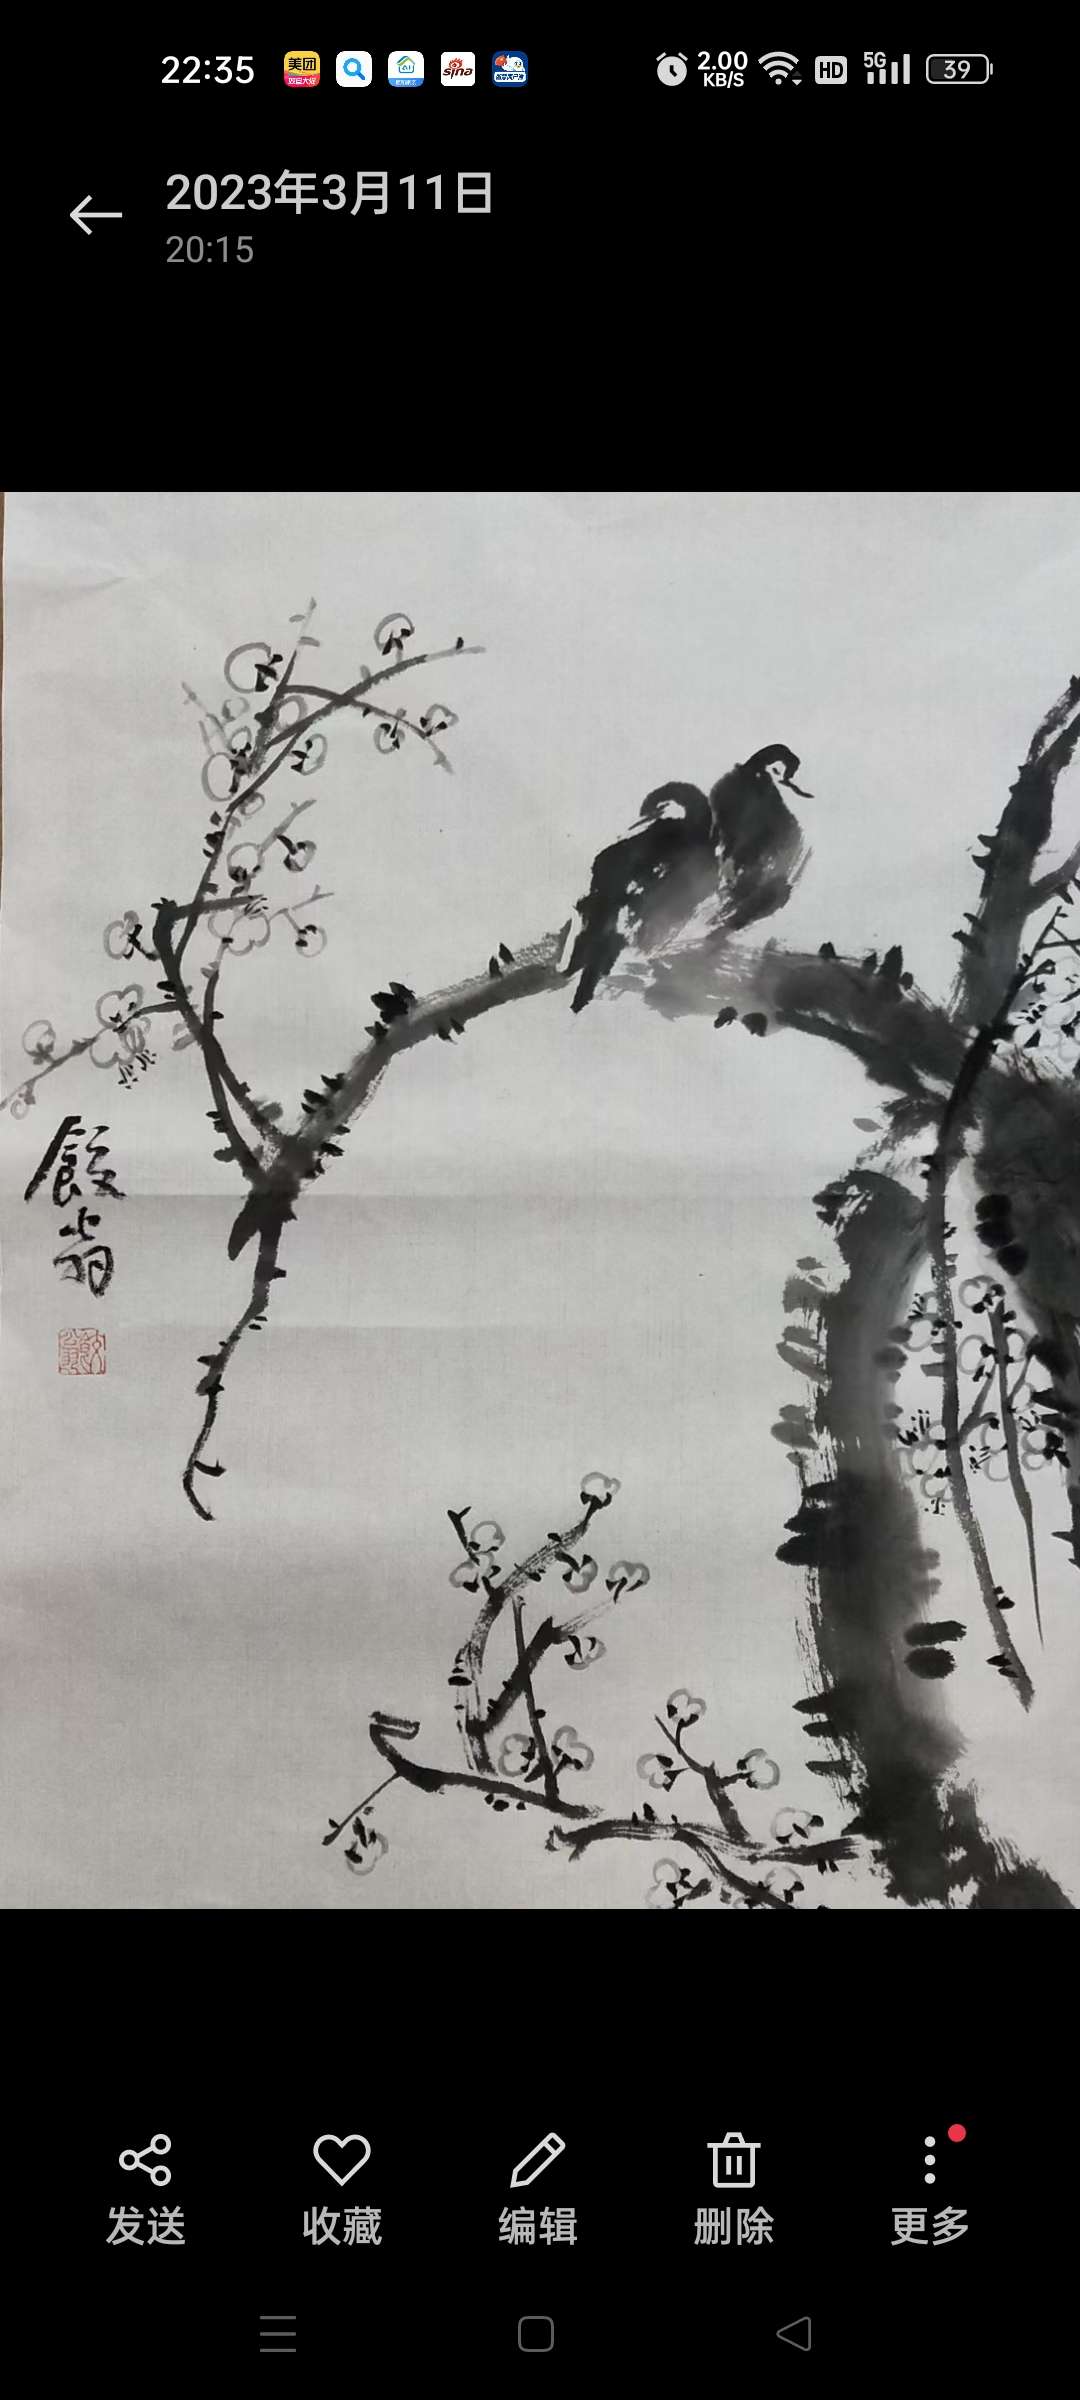 22:35
美团
sina
2.00
KB/S
HD
5G
39
2023年3月11日
20:15
翁
发送
收藏
编辑
删除
更多